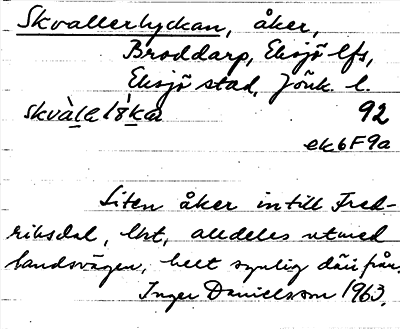 Skvallerlyckan, åker,
Broddarp, Eksjö lfs,
Eksjö stad, Jönk. l.
92
ek 6F9a
Liten åker intill Fred-
riksdal, lht, alldeles utmed
landsvägen, helt synlig därifrån.
Inger Danielsson 1963.